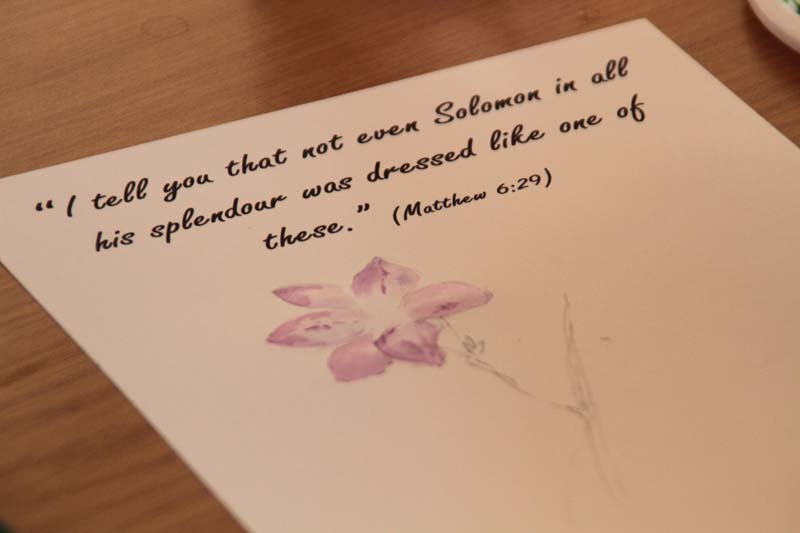 “I tell you that not even Solomon in all
his splendour was dressed like one of
these.” (Matthew 6:29)